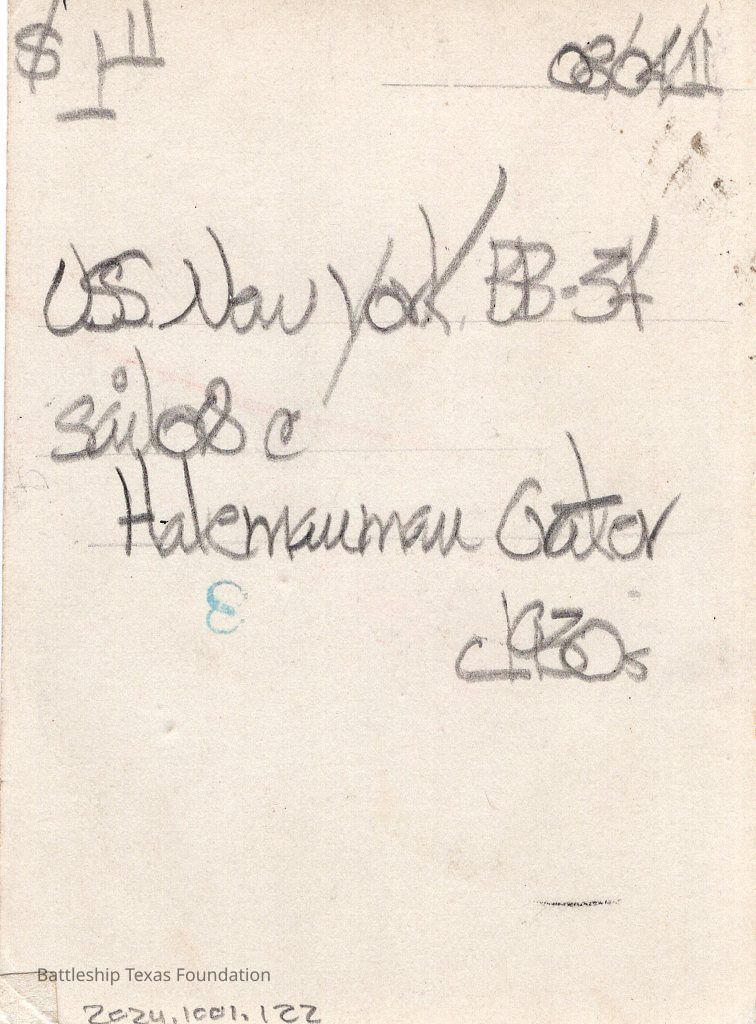 $ 14
USS New York BB-34
Sailors @
Halemaumau Crater
c1930s
Battleship Texas Foundation
2024.1001.122